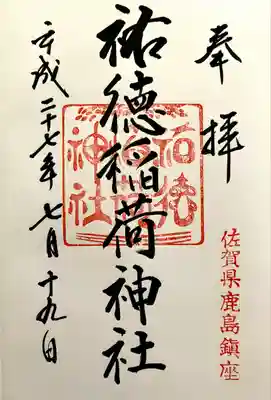 奉拝
佐賀県鹿島鎮座
祐徳稲荷神社
平成二十七年七月十九日